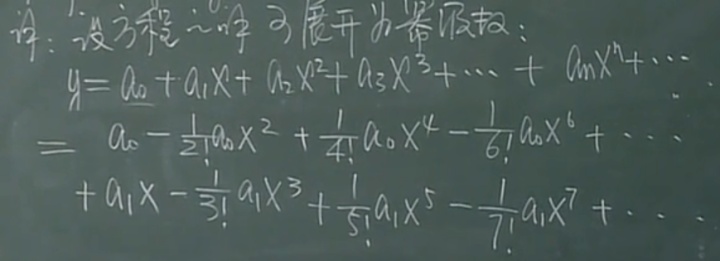 解：设方程的解可展开为幂级数：
y = a₀ + a₁x + a₂x² + a₃x³ + ⋯ + aₙxⁿ + ⋯
= a₀ - 1/2! a₀x² + 1/4! a₀x⁴ - 1/6! a₀x⁶ + ⋯
+ a₁x - 1/3! a₁x³ + 1/5! a₁x⁵ - 1/7! a₁x⁷ + ⋯